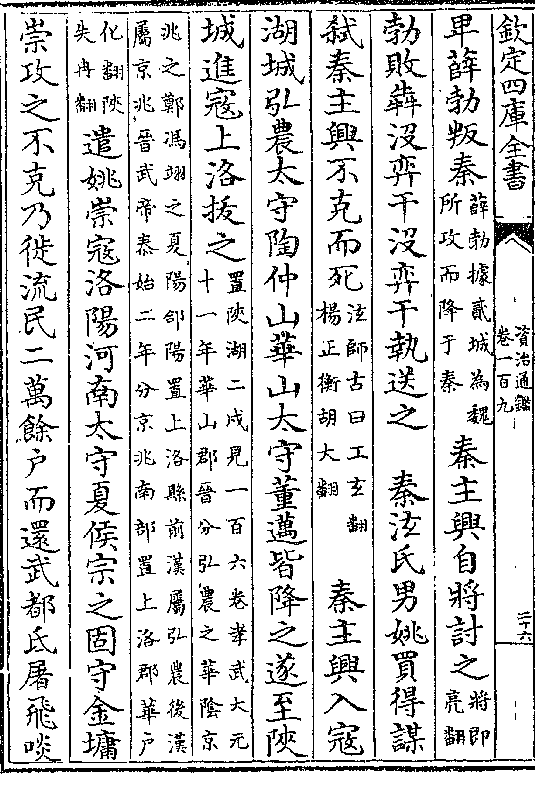 欽定四庫全書
資治通鑑
卷一百九
三十六
卑薛勃叛秦薛勃據貳城為魏所攻而降于秦秦主興自將討之將即亮翻
勃敗犇沒弈干沒弈干執送之　秦泫氏男姚買得謀
弑秦主興不克而死泫師古曰工玄翻楊正衡胡犬翻　秦主興入寇
湖城弘農太守陶仲山華山太守董邁皆降之遂至陜
城進寇上洛拔之置陜湖二戍見一百六卷孝武大元十一年華山郡晉分弘農之華隂京
兆之鄭馮翊之夏陽郃陽置上洛縣前漢屬弘農後漢屬京兆晉武帝泰始二年分京兆南部置上洛郡華戶
化翻陜失冉翻遣姚崇寇洛陽河南太守夏侯宗之固守金墉
崇攻之不克乃徙流民二萬餘戶而還武都氐屠飛啖